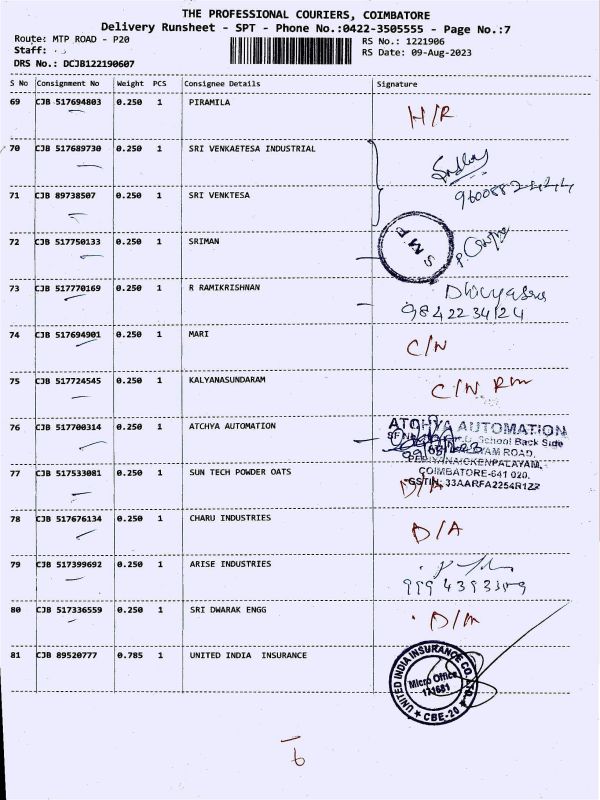 THE PROFESSIONAL COURIERS, COIMBATORE
Delivery Runsheet - SPT - Phone No.:0422-3505555 - Page No.:7
Route: MTP ROAD - P20
RS No.: 1221906
Staff:
RS Date: 09-Aug-2023
DRS No.: DCJB122190607
S No Consignment No Weight PCS Consignee Details Signature
69 CJB 517694803 0.250 1 PIRAMILA H/R
70 CJB 517689730 0.250 1 SRI VENKAETESA INDUSTRIAL
71 CJB 89738507 0.250 1 SRI VENKTESA
72 CJB 517750133 0.250 1 SRIMAN SMP
73 CJB 517770169 0.250 1 R RAMIKRISHNAN
9842234124
74 CJB 517694901 0.250 1 MARI C/N
75 CJB 517724545 0.250 1 KALYANASUNDARAM C/N Rm
76 CJB 517700314 0.250 1 ATCHYA AUTOMATION ATCHYA AUTOMATION
School Back Side
ROAD,
COIMBATORE-641 020.
GSTIN: 33AARFA2254R1ZZ
77 CJB 517533081 0.250 1 SUN TECH POWDER OATS D/A
78 CJB 517676134 0.250 1 CHARU INDUSTRIES D/A
79 CJB 517399692 0.250 1 ARISE INDUSTRIES
80 CJB 517336559 0.250 1 SRI DWARAK ENGG D/A
81 CJB 89520777 0.785 1 UNITED INDIA INSURANCE
UNITED INDIA INSURANCE CO. LTD.
Micro Office
171681
CBE-20